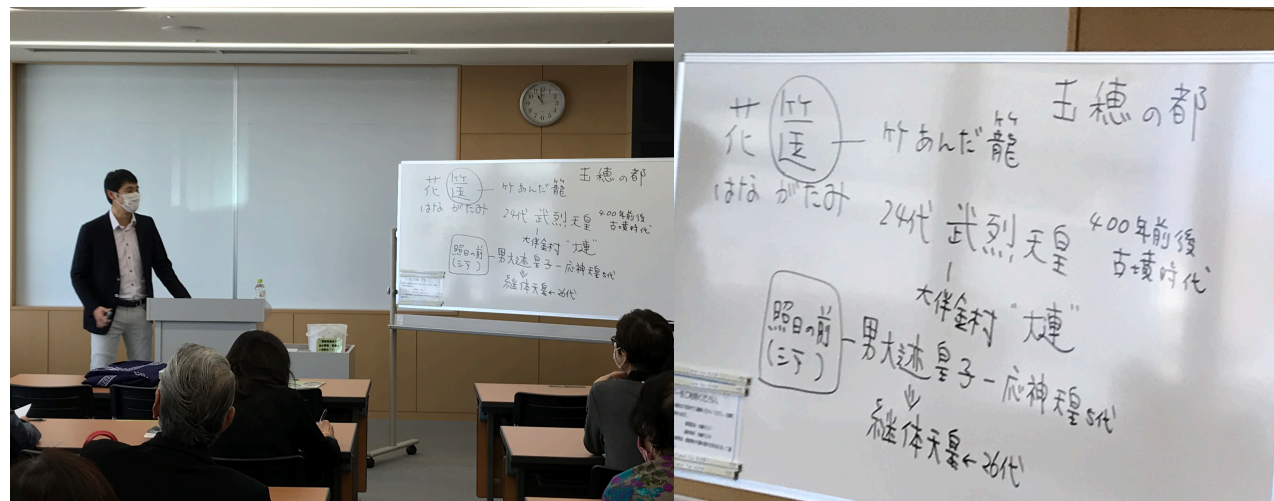 玉穂の都
花筐 ― 竹あんだ籠
はながたみ
24代 武烈天皇
400年前後
古墳時代
大伴金村 "大連"
照日の前
(シテ)
男大迹皇子 ― 応神天皇5代
⇓
継体天皇 ← 26代
玉穂の都
花筐 ― 竹あんだ籠
竹
はな がたみ
24代 武烈天皇
400年前後
古墳時代
大伴金村 "大連"
照日の前
(シテ)
男大迹皇子 ― 応神天皇5代
⇓
継体天皇 ← 26代